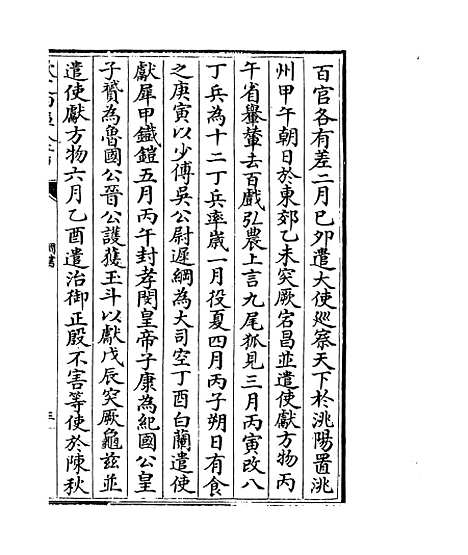 百官各有差二月己卯遣大使廵察天下於洮陽置洮
州甲午朝日於東郊乙未突厥宕昌並遣使獻方物丙
午省轝輦去百戲弘農上言九尾狐見三月丙寅改八
丁兵為十二丁兵率歲一月役夏四月丙子朔日有食
之庚寅以少傅吳公尉遲綱為大司空丁酉白蘭遣使
獻犀甲鐵鎧五月丙午封孝閔皇帝子康為紀國公皇
子贇為魯國公晉公護獲玉斗以獻戊辰突厥龜兹並
遣使獻方物六月乙酉遣治御正殷不害等使於陳秋
周書
三